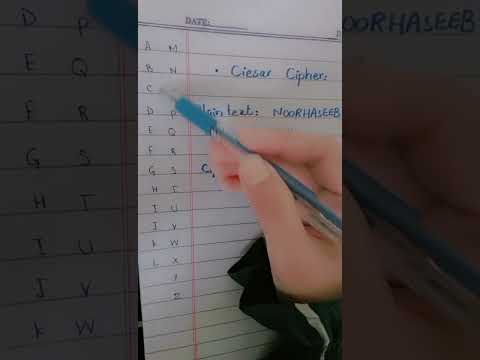 D P
E Q
F R
G S
H T
I U
J V
K W
DATE:
A M
B N
C
D P
E Q
F R
G S
H T
I U
J V
K W
L X
Y
Z
• Ciesar Cipher:
text: NOORHASEEB
NOORHASEEB